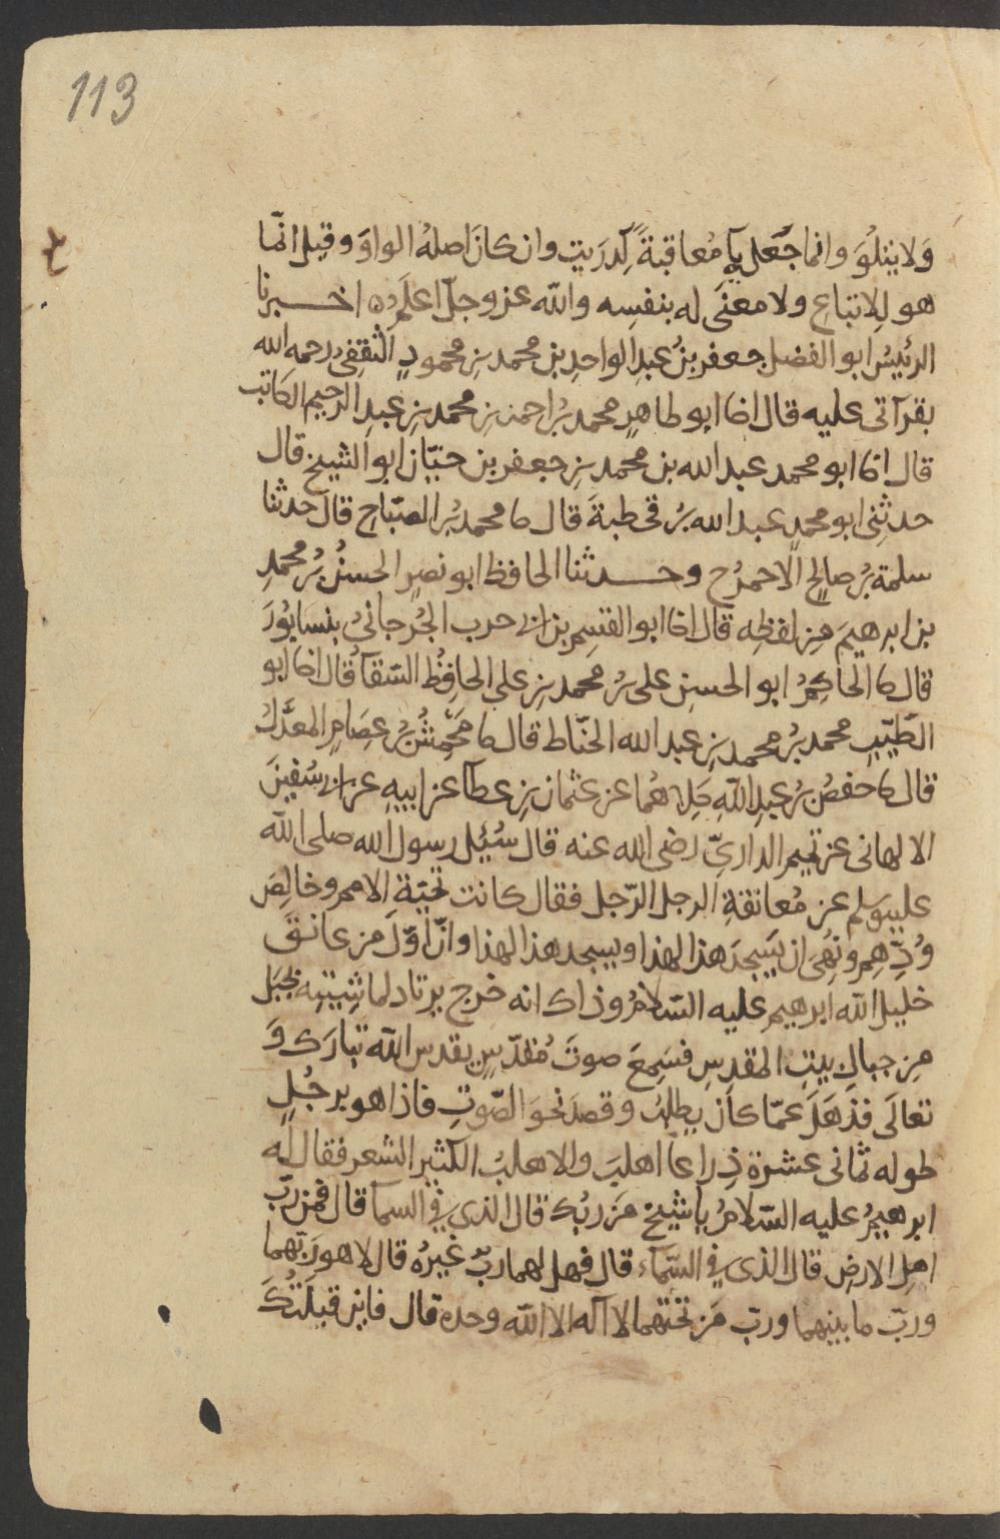 113
وَلا يتلُوَ وانما جُعل يآءً مُعاقبةً لِدَرَيت وان كانَ اصلهُ الواوَ وقيل انّما
هو للاتباع ولا معنَى له بنفسِه والله عز وجلّ اعلم ه اخـــبرنا
الرئيسُ ابو الفضل جعفر بنُ عبدِ الواحِدِ بن محمد بنِ محمودٍ الثقفِىُّ رحمه الله
بقرآتى عليه قال انا ابو طاهرٍ محمد بنُ احمد بنِ محمد بنِ عبدِ الرحيم الكاتب
قال انا ابو محمد عبد الله بن محمد بنِ جعفر بن حيّان ابو الشيخ قال
حدثنى ابو محمدٍ عبد الله بنُ قحطبةَ قال ثا محمد بنُ الصبّاحِ قال حدثنا
سلمة بنُ صالح الاحمرُ ح وحـــدثنا الحافظ ابو نصرٍ الحسنُ بنُ محمدِ
بن ابرهيمَ مِن لفظِه قال انا ابو القسِم بن ابى حرب الجُرجانىُّ بنسابُورَ
قال ثا الحاكِمُ ابو الحسنِ على بنُ محمد بنِ علي الحافِظُ السّقآءُ قال انا ابو
الطّيّبِ محمد بنُ محمد بنِ عبد الله الحنّاط قال ثا مَحْمِشُ بنُ عِصَامٍ المعدَّلُ
قال ثا حفصُ بنُ عبدِ اللهِ كِلاهُما عن عثمان بنِ عطآء عن ابيهِ عن ابى سُفينَ
الالهانى عن تميم الدارىّ رضى الله عنه قال سُئِل رسول الله صلى الله
عليه وسلم عن مُعانقةِ الرجل الرّجل فقال كانت تحيّةَ الامم وخالِصَ
وُدِّهِم ونُهِىَ ان يَسجدَ هذا لهذا ويسجد هذا لهذا وانّ اوّلَ من عانقَ
خليل الله ابرهيم عليه السّلامُ وذاك انه خرج يرتاد لماشِيتِه بجَبَل
مِن جبالِ بيتِ المقدِسِ فسَمِعَ صوتَ مُقدّسٍ يقدس الله تبارَكَ وَ
تعالَى فذَهَلَ عمّا كان يطلبُ وقصدَ نحوَ الصّوتِ فاذا هو برجُلٍ
طوله ثمانى عشرة ذِراعاً اهلبَ والاهلبُ الكثيرُ الشعر فقال له
ابرهيمُ عليه السّلامُ يا شيخ مَن ربُّك قال الذى في السمآء قال فمن ربّ
اهلِ الارضِ قال الذى في السّمآء قال فهل لهما ربٌّ غيرُه قال لا هو ربّهما
وربّ ما بينهما وربّ مَن تحتهما لا اله الا الله وحده قال فاين قبلَتُكَ